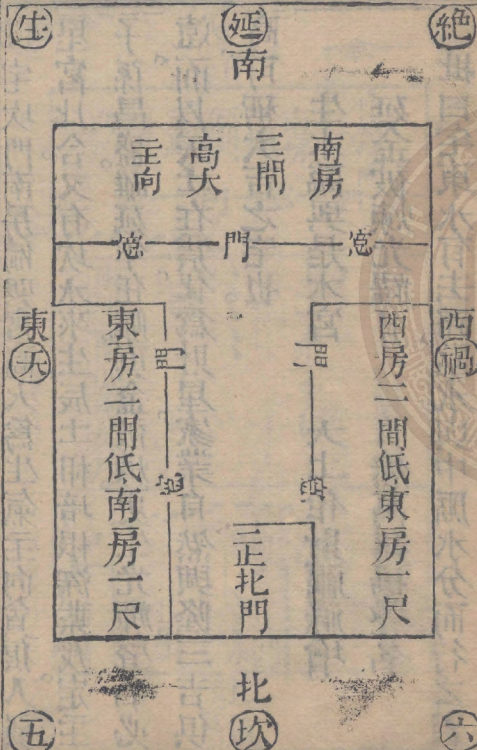 絶
延
生
南
南房
三間
高大
主向
窓
門
窓
西
禍
西房二間低東房一尺
門
窓
東
天
東房二間低南房一尺
門
窓
三正北門
北
坎
六
五